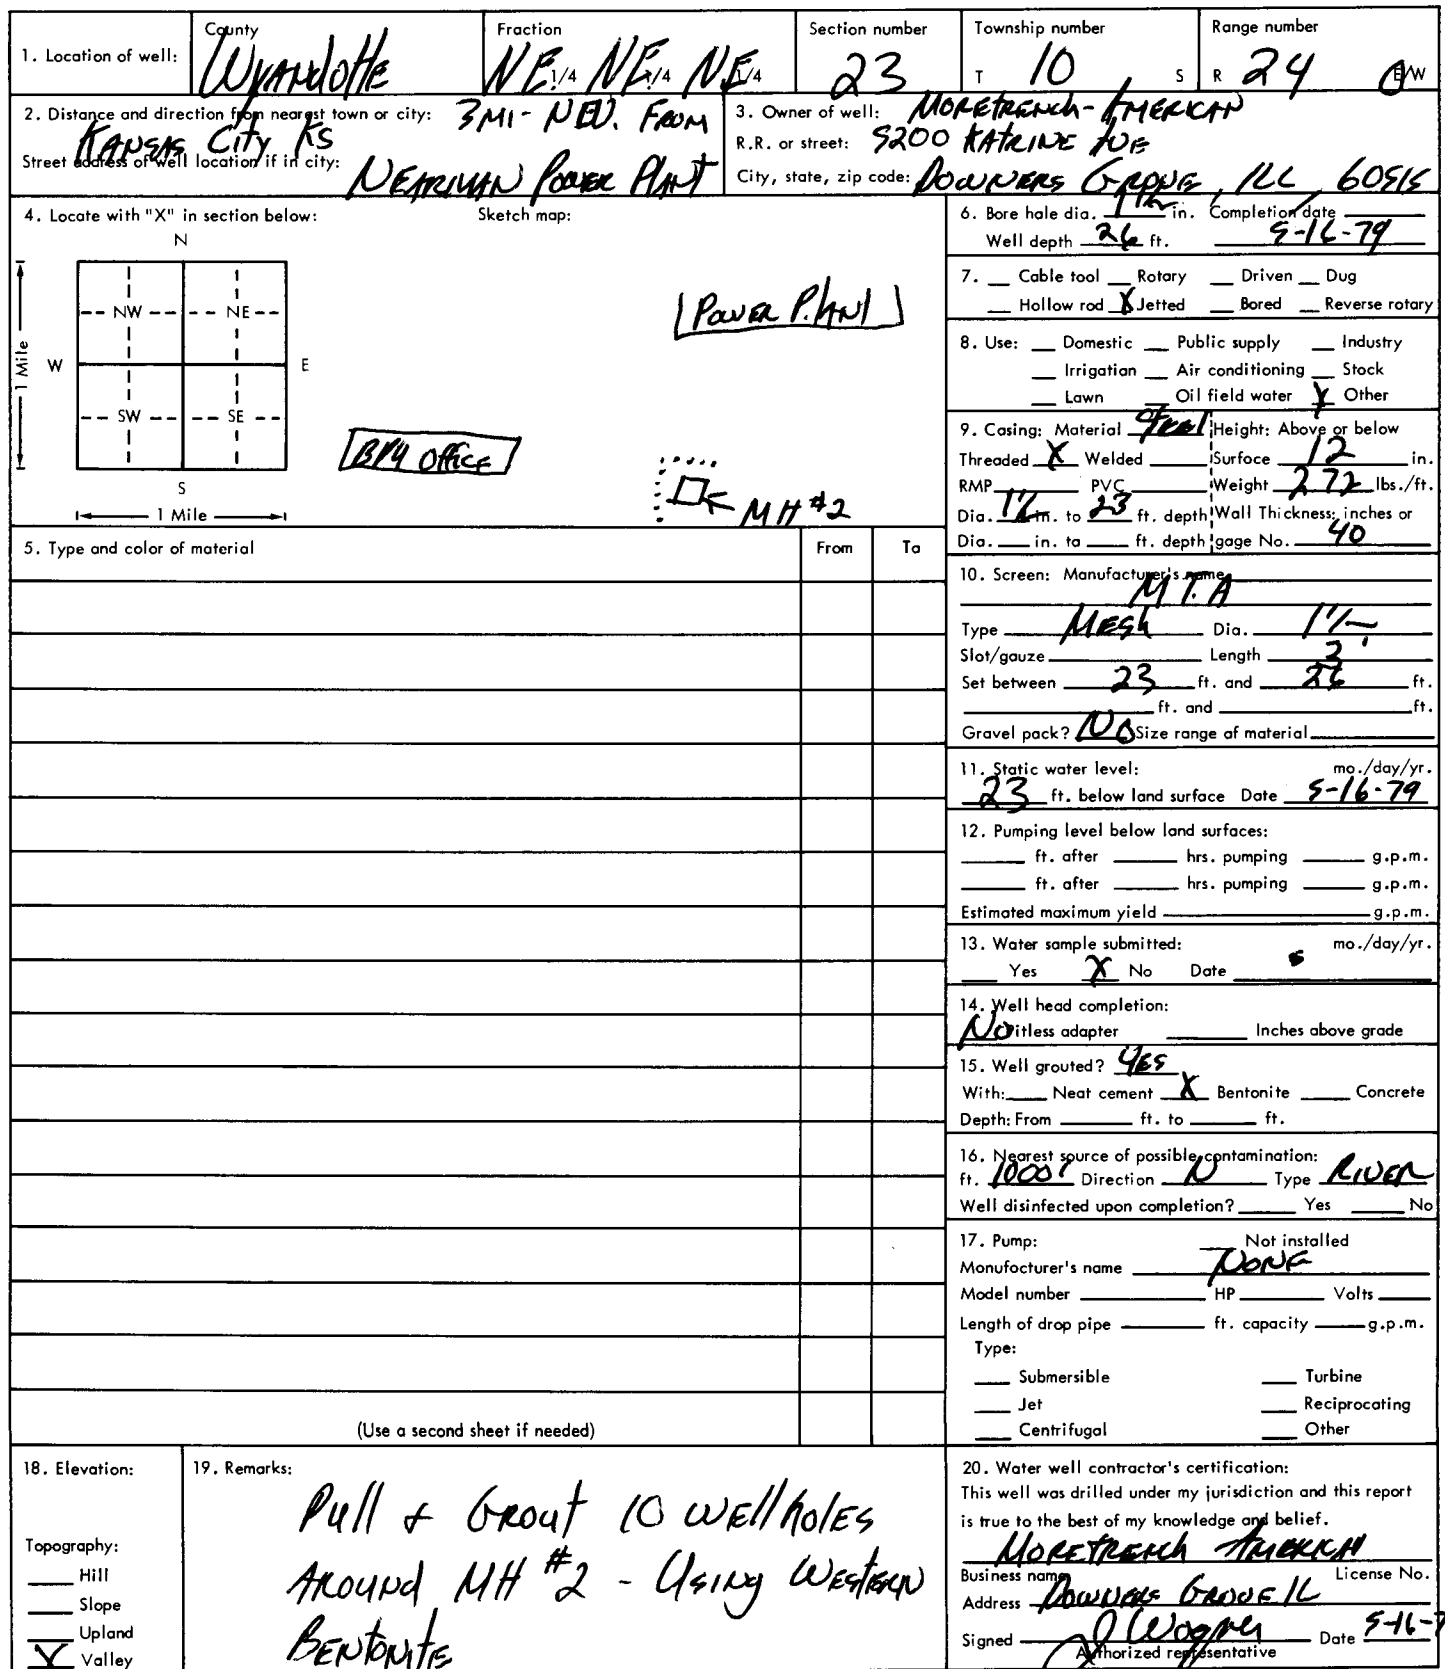 1. Location of well:
County
Wyandotte
Fraction
NE 1/4 NE 1/4 NE 1/4
Section number
23
Township number
T 10 S
Range number
R 24 E/W
2. Distance and direction from nearest town or city: 3 MI - NW. From
Kansas City KS
Street address of well location if in city:
Nearman Power Plant
3. Owner of well: Moretrench-American
R.R. or street: 5200 Katrine Ave
City, state, zip code: Downers Grove, ILL 60515
4. Locate with "X" in section below:
Sketch map:
N
NW NE
W E
SW SE
S
1 Mile
1 Mile
Power Plant
BPU Office
MH #2
5. Type and color of material
From To
(Use a second sheet if needed)
6. Bore hole dia. in. Completion date
Well depth 26 ft. 5-16-79
7. Cable tool Rotary Driven Dug
Hollow rod X Jetted Bored Reverse rotary
8. Use: Domestic Public supply Industry
Irrigation Air conditioning Stock
Lawn Oil field water X Other
9. Casing: Material Steel Height: Above or below
Threaded X Welded Surface 12 in.
RMP PVC Weight 2.72 lbs./ft.
Dia. in. to 23 ft. depth Wall Thickness: inches or
Dia. in. to ft. depth gage No. 40
10. Screen: Manufacturer's name
M.T.A
Type Mesh Dia.
Slot/gauze Length
Set between 23 ft. and 26 ft.
ft. and ft.
Gravel pack? NO Size range of material
11. Static water level: mo./day/yr.
23 ft. below land surface Date 5-16-79
12. Pumping level below land surfaces:
ft. after hrs. pumping g.p.m.
ft. after hrs. pumping g.p.m.
Estimated maximum yield g.p.m.
13. Water sample submitted: mo./day/yr.
Yes X No Date
14. Well head completion:
No itless adapter Inches above grade
15. Well grouted? Yes
With: Neat cement X Bentonite Concrete
Depth: From ft. to ft.
16. Nearest source of possible contamination:
ft. 1000' Direction N Type River
Well disinfected upon completion? Yes No
17. Pump: Not installed
Manufacturer's name None
Model number HP Volts
Length of drop pipe ft. capacity g.p.m.
Type:
Submersible Turbine
Jet Reciprocating
Centrifugal Other
18. Elevation:
Topography:
Hill
Slope
Upland
X Valley
19. Remarks:
Pull & Grout 10 well holes
Around MH #2 - Using Western
Bentonite
20. Water well contractor's certification:
This well was drilled under my jurisdiction and this report
is true to the best of my knowledge and belief.
Moretrench American
Business name License No.
Address Downers Grove IL
Signed J Wogner Date 5-16-7
Authorized representative